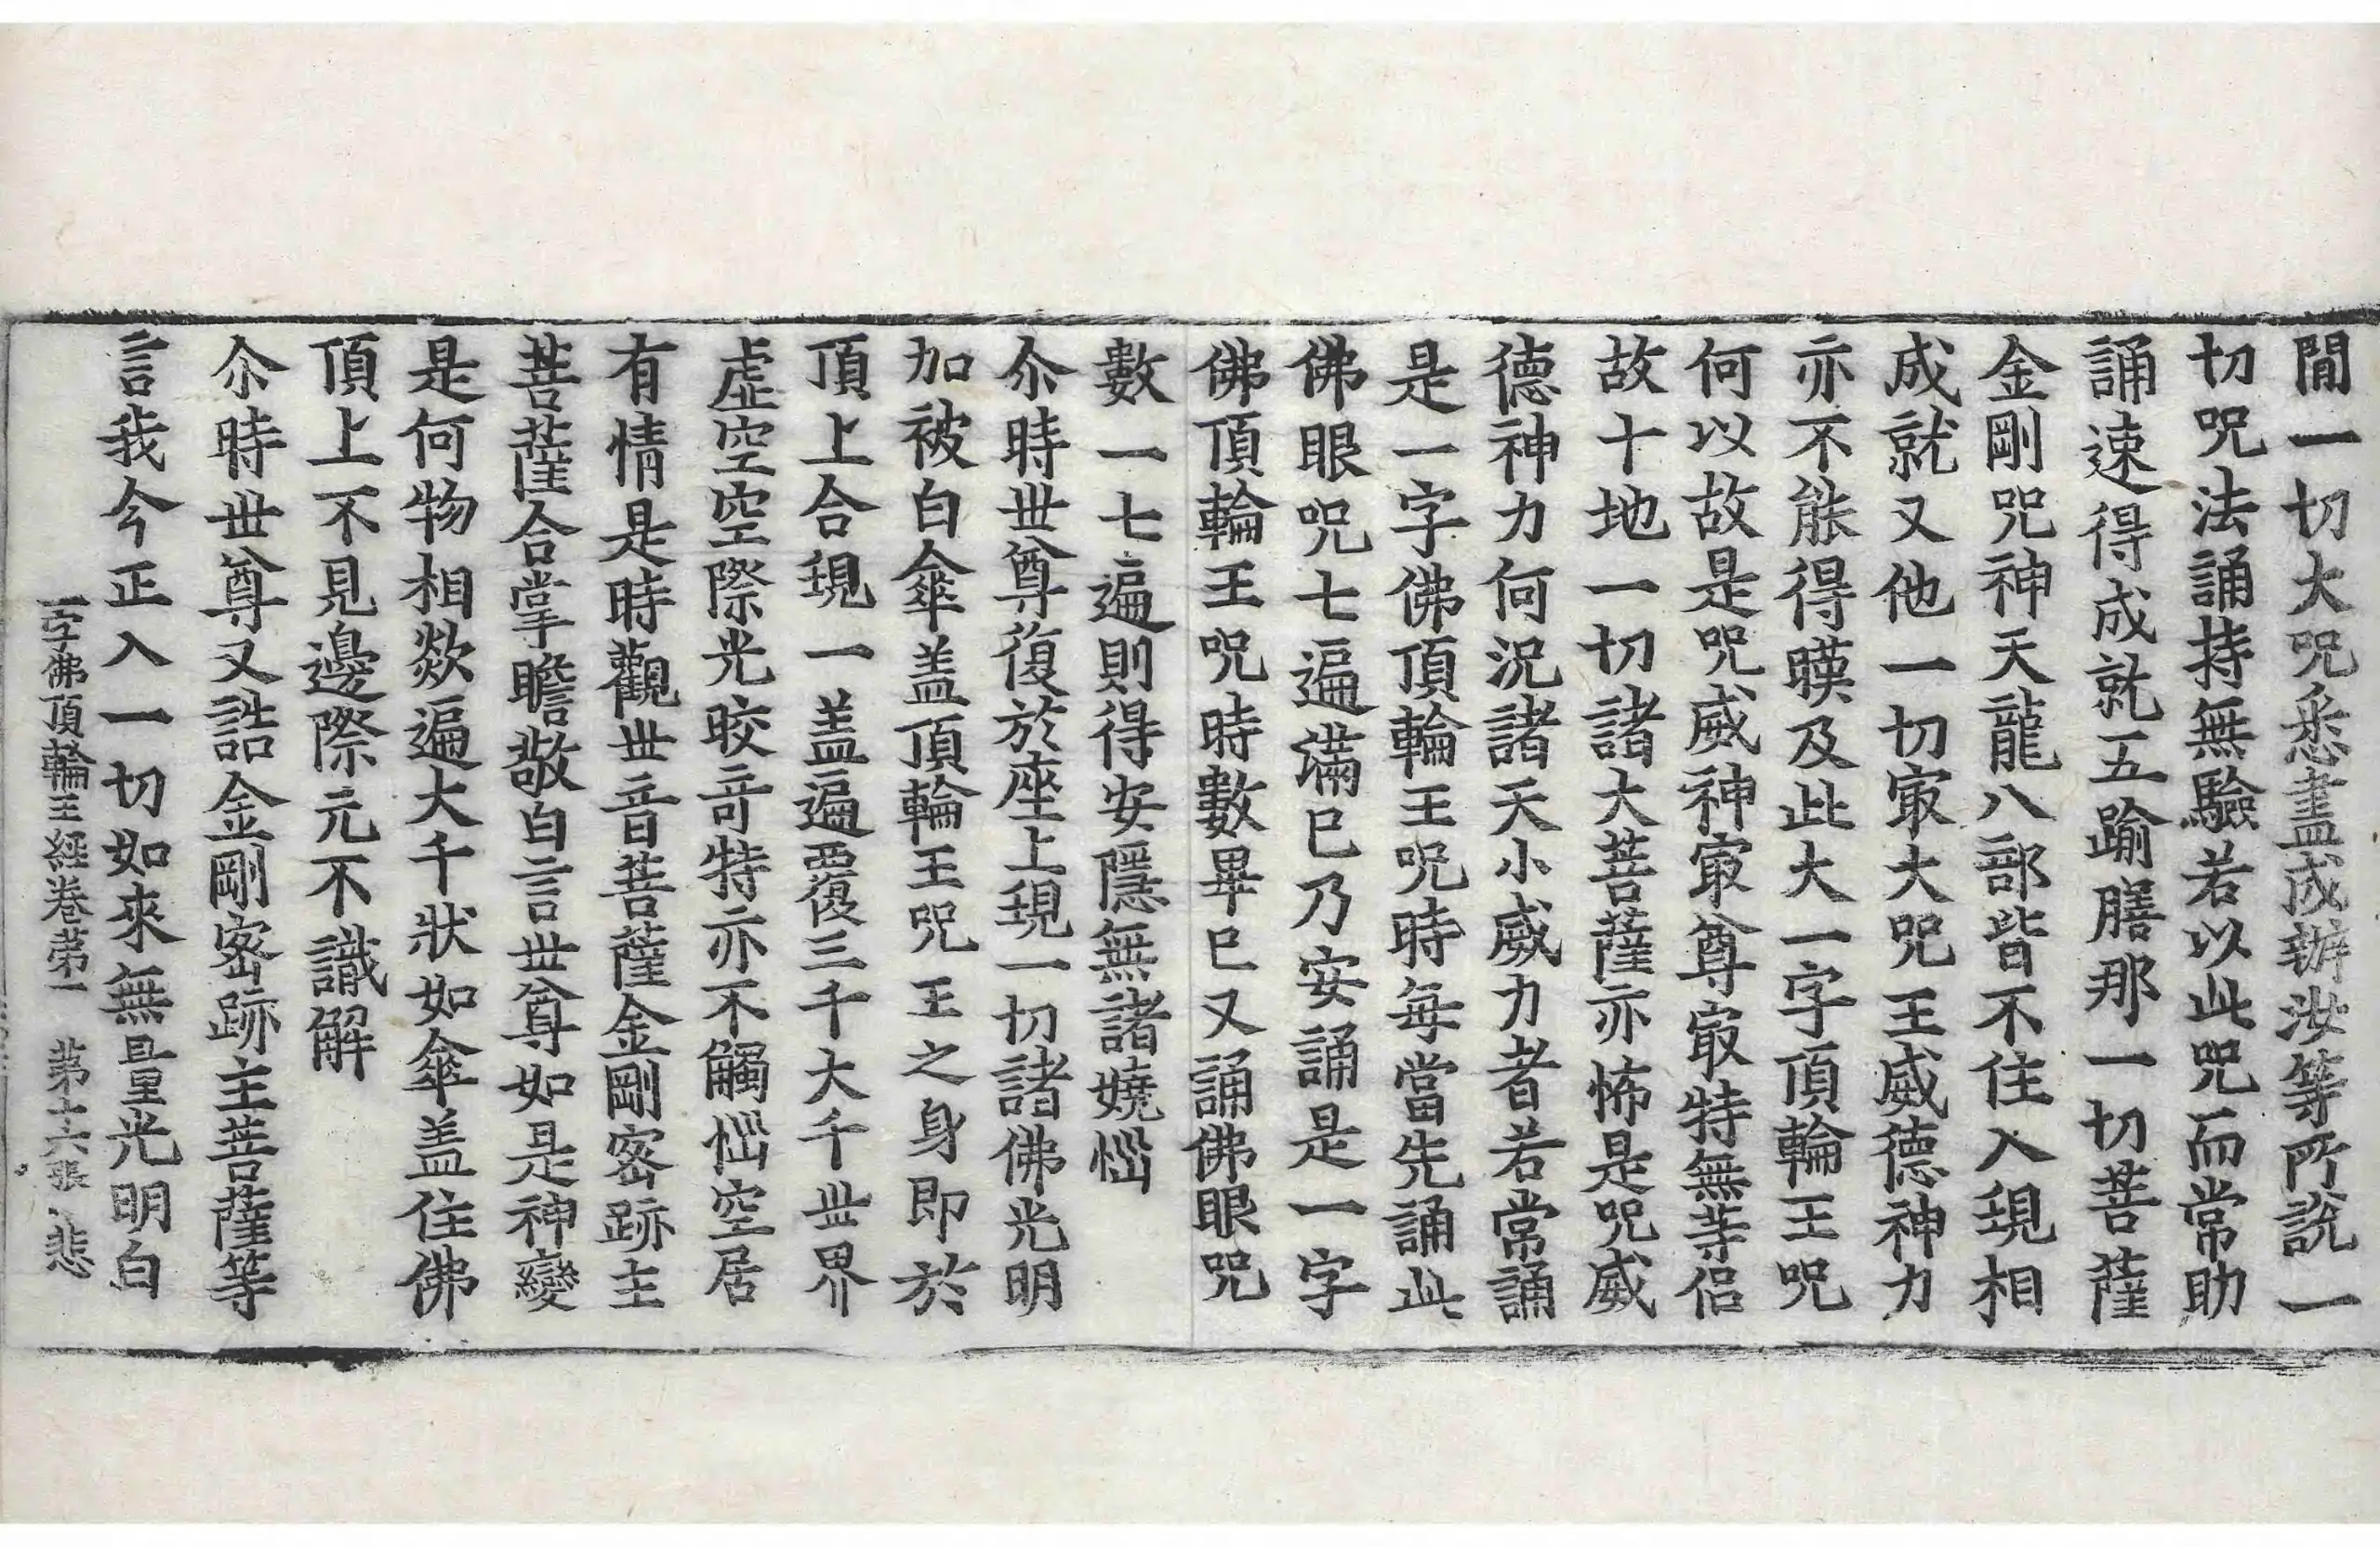 間一切大呪悉盡成辦汝等所說一
切呪法誦持無驗若以此呪而常助
誦速得成就五踰膳那一切菩薩
金剛呪神天龍八部皆不住入現相
成就又他一切㝡大呪王威德神力
亦不能得暎及此大一字頂輪王呪
何以故是呪威神㝡尊㝡特無等侶
故十地一切諸大菩薩亦怖是呪威
德神力何況諸天小威力者若常誦
是一字佛頂輪王呪時每當先誦此
佛眼呪七遍滿已乃安誦是一字
佛頂輪王呪時數畢已又誦佛眼呪
數一七遍則得安隱無諸嬈惱
尒時世尊復於座上現一切諸佛光明
加被白傘盖頂輪王呪王之身即於
頂上合現一盖遍覆三千大千世界
虛空空際光晈竒特亦不觸惱空居
有情是時觀世音菩薩金剛密跡主
菩薩合掌瞻敬白言世尊如是神變
是何物相欻遍大千狀如傘盖住佛
頂上不見邊際元不識解
尒時世尊又誥金剛密跡主菩薩等
言我今正入一切如來無量光明白
一字佛頂輪王經卷第一 第十六張 悲